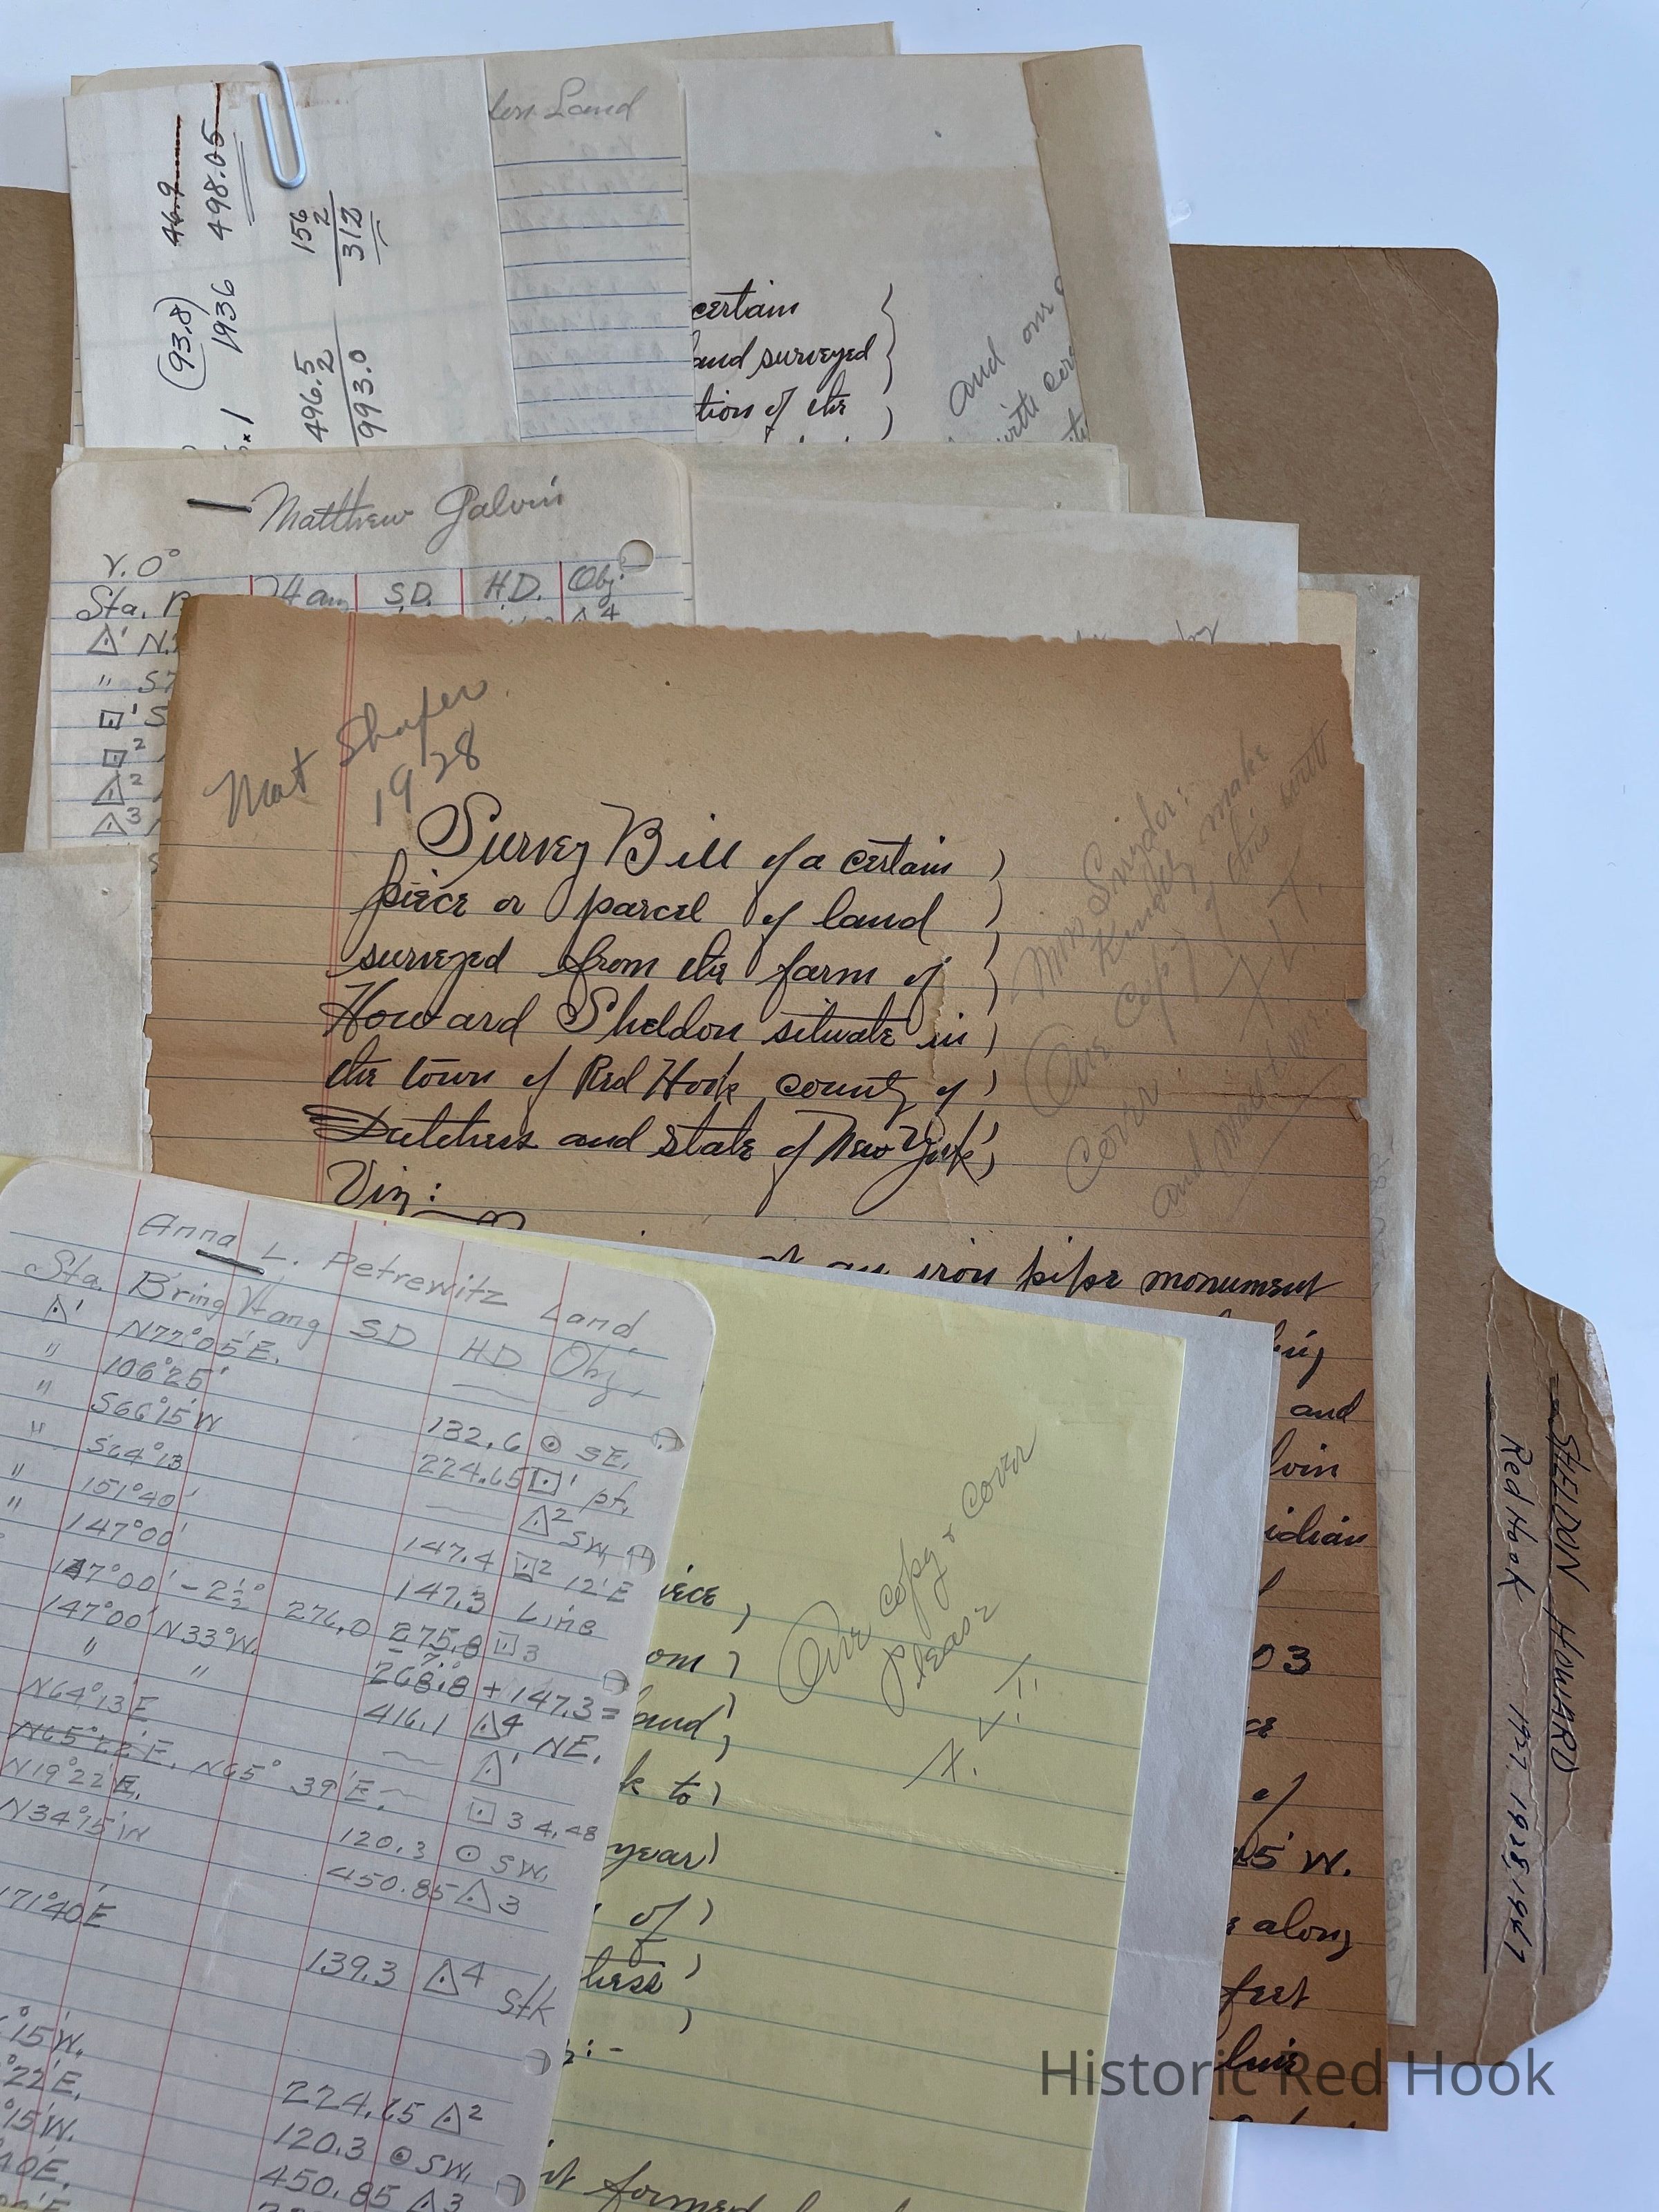 ton Land
46.9
498.05
(93.8)
1936
156
2
312
496.5
2
993.0
certain
land surveyed
tion of the
and one
with cor
Matthew Galvin
V. 0°
Sta. B
H ang
S.D.
H.D.
Obj.
△4
△1 N.
" S7
⊡1 S
⊡2
△2
△3
by
Mat Shafer
1928
Survey Bill of a certain )
piece or parcel of land )
surveyed from the farm of )
Howard Sheldon situate in )
the town of Red Hook county of )
Dutchess and state of New York )
Viz:
Miss Snyder:
Kindly make
One Copy of this with
Cover
F. L. T.
and
at an iron pipe monument
ing
and
lvin
idian
03
ce
of
25' W.
e along
feet
line
Anna L. Petrewitz Land
Sta. B'ring H ang SD HD Obj.
△1 N77°05'E.
" 106°25' 132.6 ⊙ SE.
" S66°15'W 224.65 ⊡1 pt.
" S64°13 △2 SW,
" 151°40' 147.4 ⊡2 12'E
" 147°00' 147.3 Line
147°00' - 2½° 276.0 275.8 ⊡3
147°00' N33°W.
268.8 + 147.3 =
" " 416.1 △4 NE.
N64°13'E △1
N65°22'E. N65°39'E. ⊡3 4.48
N19°22'E. 120.3 ⊙ SW.
N34°15'W 450.85 △3
71°40'E 139.3 △4
Stk
°15'W.
°22'E. 224.65 △2
°15'W. 120.3 ⊙ SW.
40E. 450.85 △3
iece )
om )
land )
k to )
year )
of )
hess )
)
z: -
formed
One copy & cover
please
F. L. T.
SHELDON HOWARD
Red Hook 1927, 1928, 1947
Historic Red Hook